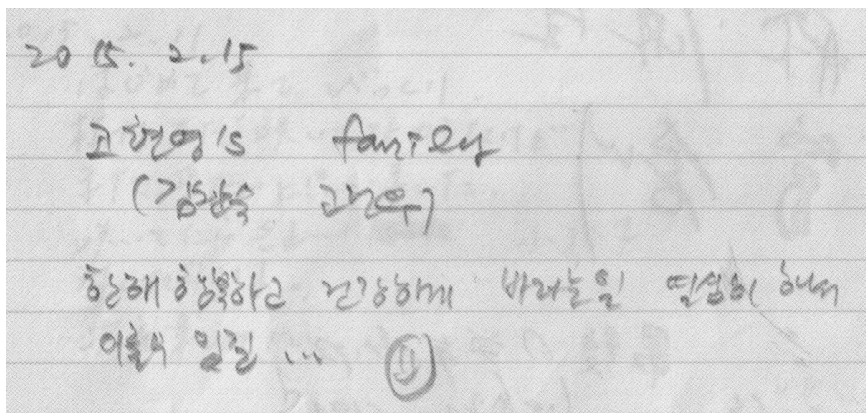 2015. 2. 15
고현영's family
(김 숙 고현우)
한해 행복하고 건강하게 바라는일 열심히 해서
이룰수 있길 ...